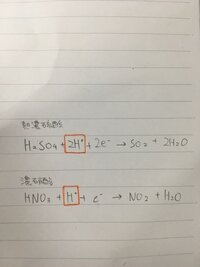 熱濃硫酸
H₂SO₄ + 2H⁺ + 2e⁻ → SO₂ + 2H₂O
濃硝酸
HNO₃ + H⁺ + e⁻ → NO₂ + H₂O